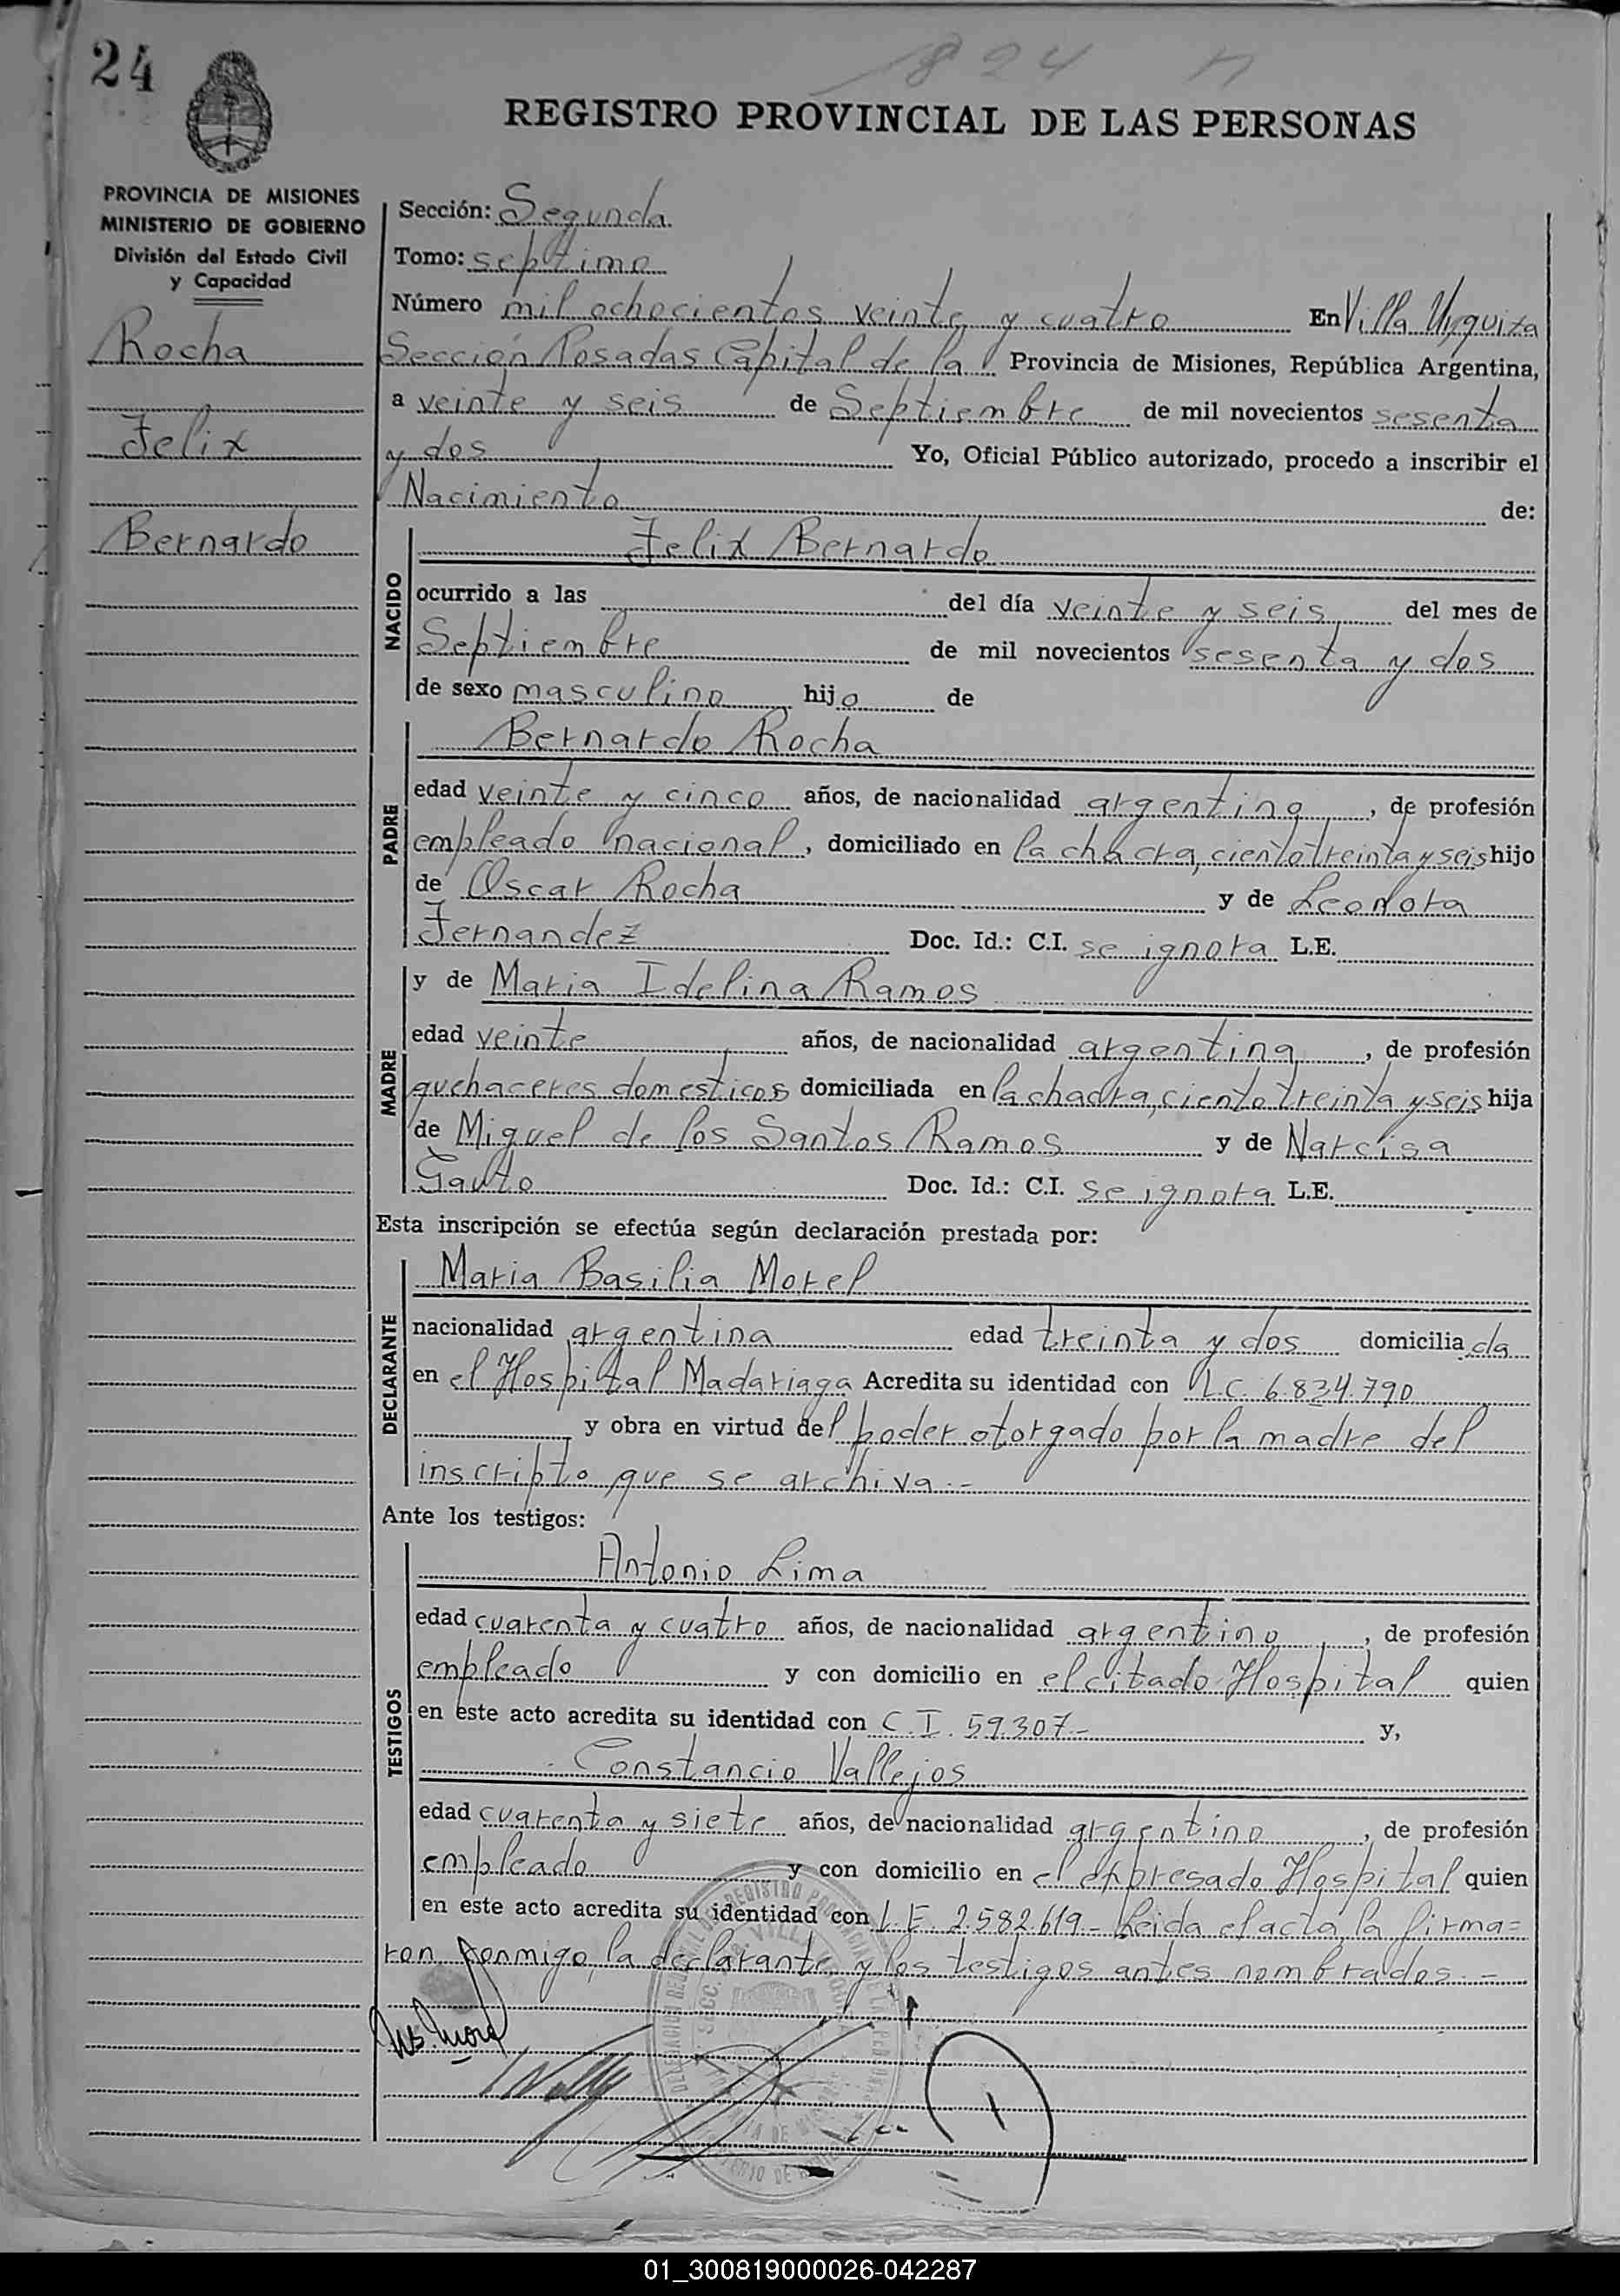 24
1824 n
REGISTRO PROVINCIAL DE LAS PERSONAS
PROVINCIA DE MISIONES
MINISTERIO DE GOBIERNO
División del Estado Civil
y Capacidad
Rocha
Felix
Bernardo
Sección: Segunda
Tomo: septimo
Número mil ochocientos veinte y cuatro En Villa Urquiza
Sección Posadas Capital de la Provincia de Misiones, República Argentina,
a veinte y seis de Septiembre de mil novecientos sesenta
y dos Yo, Oficial Público autorizado, procedo a inscribir el
Nacimiento de:
NACIDO
Felix Bernardo
ocurrido a las del día veinte y seis del mes de
Septiembre de mil novecientos sesenta y dos
de sexo masculino hijo de
PADRE
Bernardo Rocha
edad veinte y cinco años, de nacionalidad argentina, de profesión
empleado nacional, domiciliado en la chacra, ciento treinta y seis hijo
de Oscar Rocha y de Leonora
Fernandez Doc. Id.: C.I. se ignora L.E.
MADRE
y de Maria Idelina Ramos
edad veinte años, de nacionalidad argentina, de profesión
quehaceres domesticos domiciliada en la chacra, ciento treinta y seis hija
de Miguel de los Santos Ramos y de Narcisa
Gauto Doc. Id.: C.I. se ignora L.E.
Esta inscripción se efectúa según declaración prestada por:
DECLARANTE
Maria Basilia Morel
nacionalidad argentina edad treinta y dos domiciliada
en el Hospital Madariaga Acredita su identidad con L.C. 6.834.790
y obra en virtud del poder otorgado por la madre del
inscripto que se archiva.-
Ante los testigos:
TESTIGOS
Antonio Lima
edad cuarenta y cuatro años, de nacionalidad argentino, de profesión
empleado y con domicilio en el citado Hospital quien
en este acto acredita su identidad con C.I. 59.307- y,
Constancio Vallejos
edad cuarenta y siete años, de nacionalidad argentino, de profesión
empleado y con domicilio en el expresado Hospital quien
en este acto acredita su identidad con L.E. 2.582.619- Leida el acta, la firma=
ron conmigo, la declarante y los testigos antes nombrados.-
01_300819000026-042287